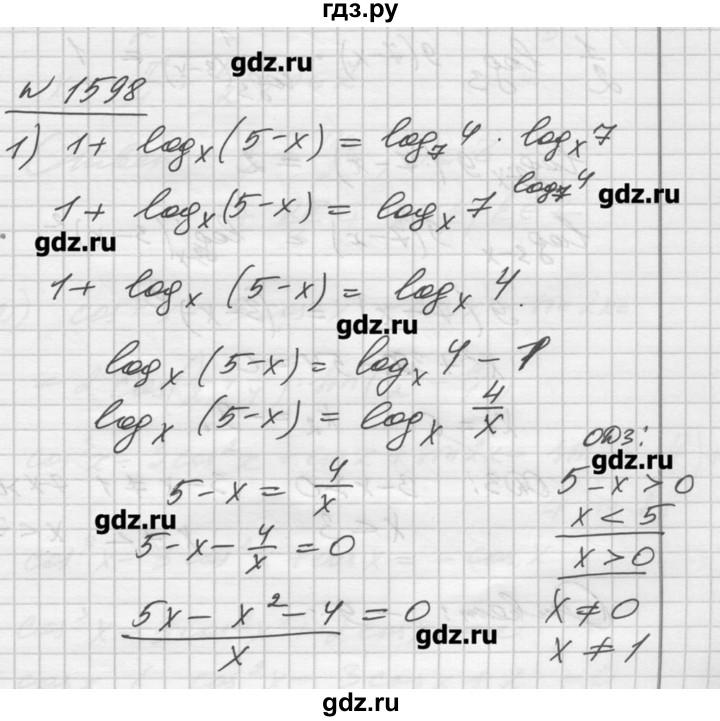 гдз.ру
gdz.ru
№ 1598
1) 1 + log_x (5 - x) = log_7 4 · log_x 7
1 + log_x (5 - x) = log_x 7^(log_7 4)
gdz.ru
gdz.ru
1 + log_x (5 - x) = log_x 4.
gdz.ru
log_x (5 - x) = log_x 4 - 1
log_x (5 - x) = log_x 4/x
ОДЗ:
gdz.ru
5 - x = 4/x
5 - x > 0
gdz.ru
x < 5
5 - x - 4/x = 0
x > 0
(5x - x² - 4)/x = 0
x ≠ 0
gdz.ru
x ≠ 1
gdz.ru